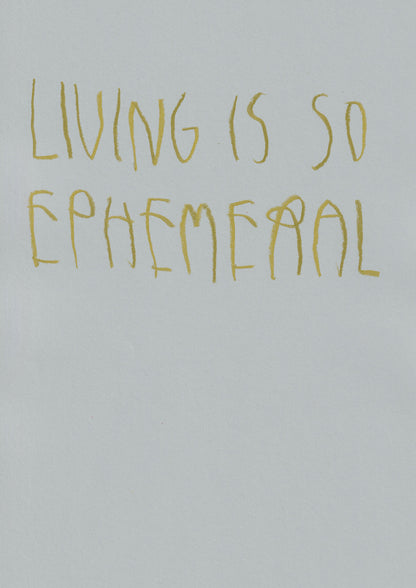 LIVING IS SO
EPHEMERAL